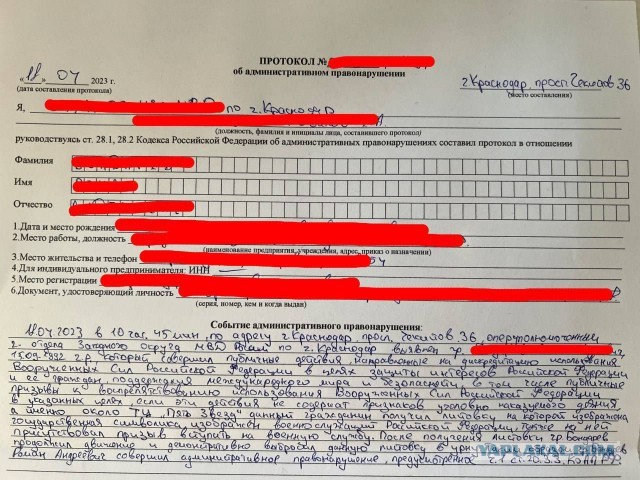 ПРОТОКОЛ №
об административном правонарушении
«11» 04 2023 г.
(дата составления протокола)
г Краснодар, просп Чекистов 36
(место составления)
Я, по г. Краснодар
(должность, фамилия и инициалы лица, составившего протокол)
руководствуясь ст. 28.1, 28.2 Кодекса Российской Федерации об административных правонарушениях составил протокол в отношении
Фамилия
Имя
Отчество
1.Дата и место рождения
2.Место работы, должность
(наименование предприятия, учреждения, адрес, приказ о назначении)
3.Место жительства и телефон
4.Для индивидуального предпринимателя: ИНН —
5.Место регистрации
6.Документ, удостоверяющий личность
(серия, номер, кем и когда выдан)
Событие административного правонарушения:
11.04.2023 в 10 час 45 мин, по адресу г Краснодар, просп. Чекистов 36, оперуполномоченный
2- отдела Западного округа МВД России по г. Краснодар выявлен гр.
15.09.1992 г.р. который совершил публичные действия, направленные на дискредитацию использования
Вооруженных Сил Российской Федерации в целях защиты интересов Российской Федерации
и ее граждан, поддержания международного мира и безопасности, в том числе публичные
призывы к воспрепятствованию использования Вооруженных Сил Российской Федерации
в указанных целях если эти действия не содержат признаков уголовно наказуемого деяния
а именно около ТЦ "Пять Звезд" данный гражданин получил листовку, на которой изображена
государственная символика, изображен военнослужащий Российской Федерации, также на ней
присутствовал призыв вступить на военную службу. После получения листовки гр. Бондарев
продолжил движение и демонстративно выбросил данную листовку в
Андреевич совершил административное правонарушение, предусмотренное ч.1 ст. 20.3.3. КоАП РФ
YAPLAKAL.COM